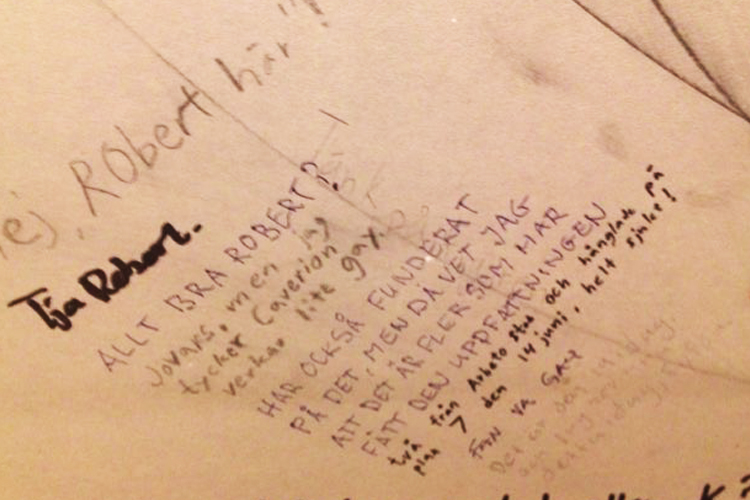 Hej, Robert här!
Tja Robert.
ALLT BRA ROBERT?
Jovars, men jag
tycker Caverion
verkar lite gay.
HAR OCKSÅ FUNDERAT
PÅ DET, MEN DÅ VET JAG
ATT DET ÄR FLER SOM HAR
FÅTT DEN UPPFATTNINGEN
två från Arbeto stod och hånglade på
plan 7 den 14 juni, helt sjukt!
FAN VA GAY
Det är